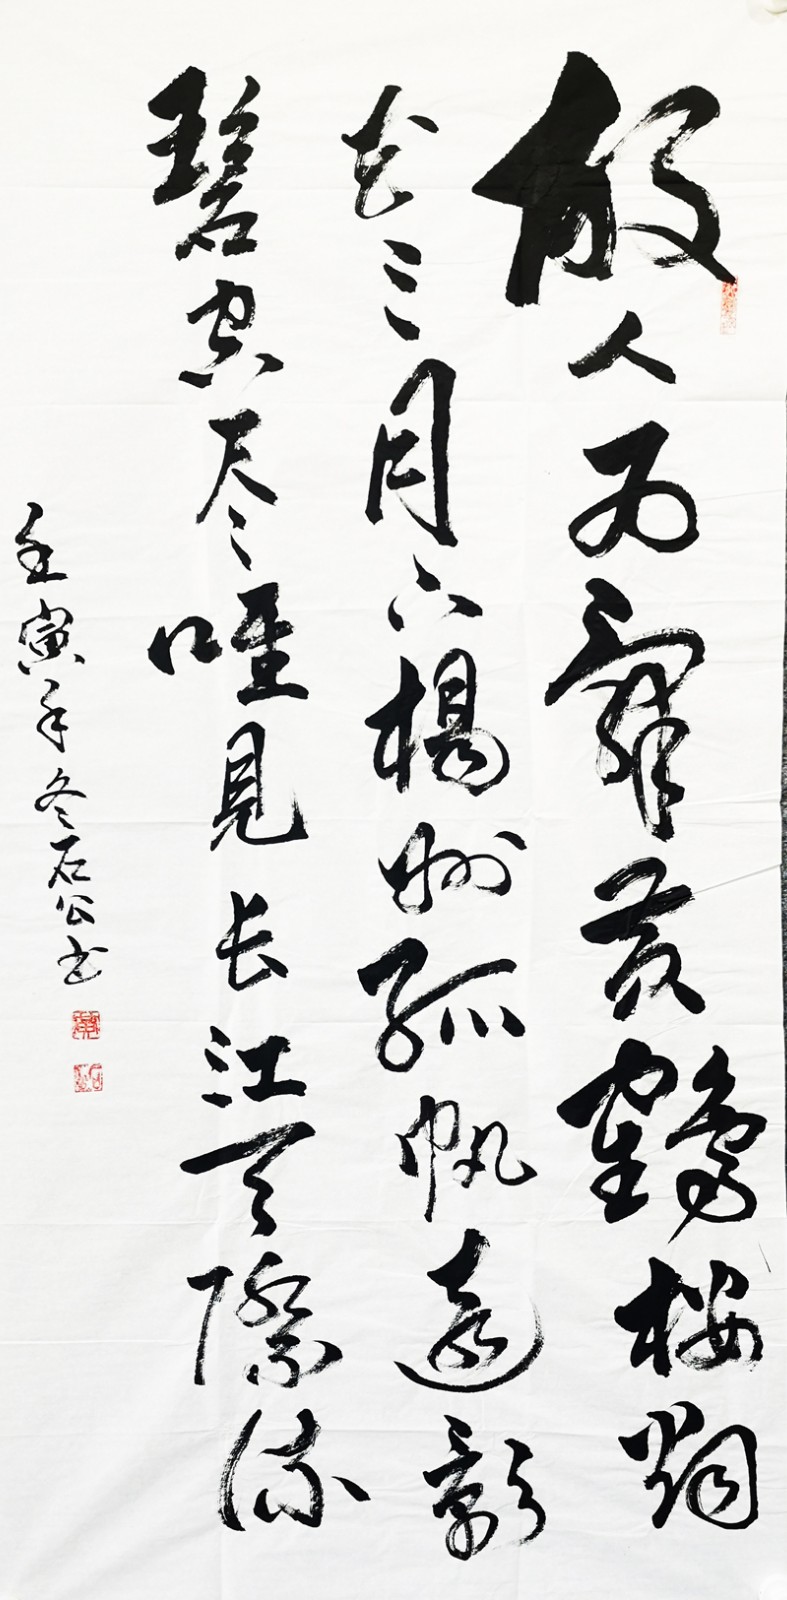 故人西辭黄鶴楼烟
花三月下楊州孤帆遠影
碧空尽唯見长江天際流
壬寅年冬石公书